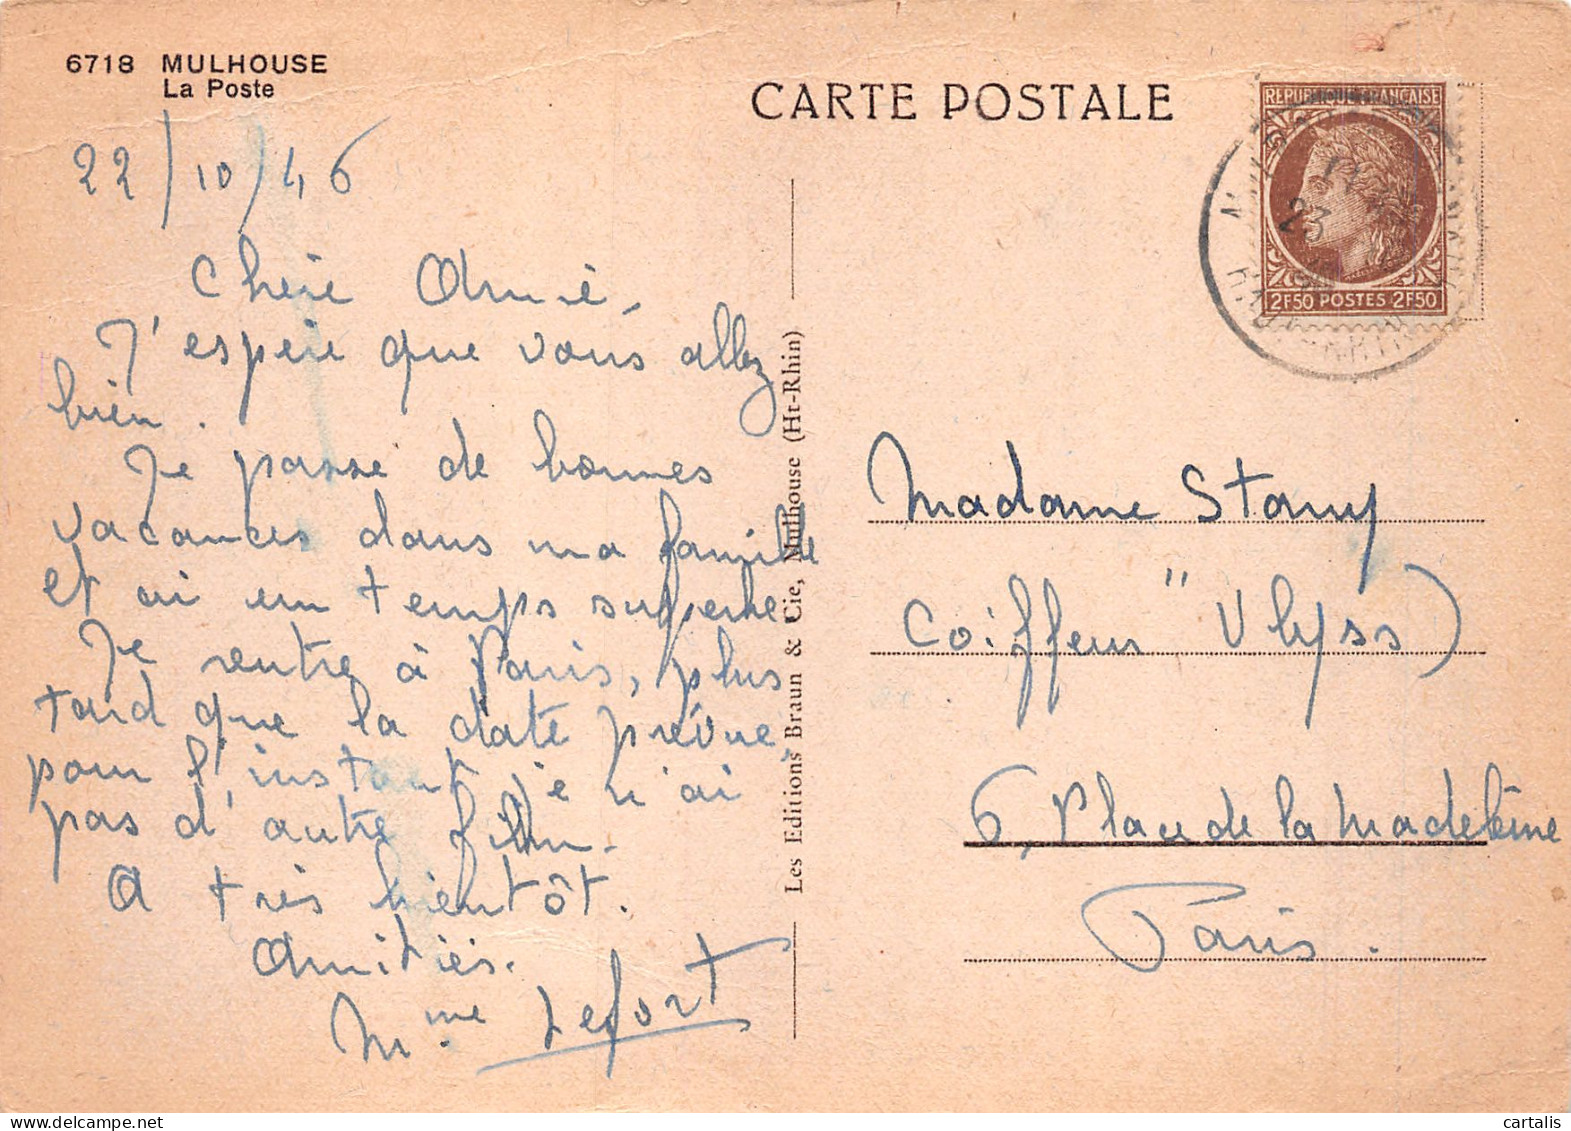 6718 MULHOUSE
La Poste
CARTE POSTALE
REPUBLIQUE FRANÇAISE
2F50 POSTES 2F50
23
22/10/46
Chère Amie,
J'espère que vous allez
bien.
Je passe de bonnes
vacances dans ma famille
et ai un temps superbe
Je rentre à Paris, plus
tard que la date prévue,
pour l'instant je n'ai
pas d'autre film.
A très bientôt.
Amitiés.
Mme Lefort
Les Editions Braun & Cie, Mulhouse (Ht-Rhin)
Madame Stamy
Coiffeur "Ulyss)
6, Place de la Madeleine
Paris.
cartalis delcampe.net